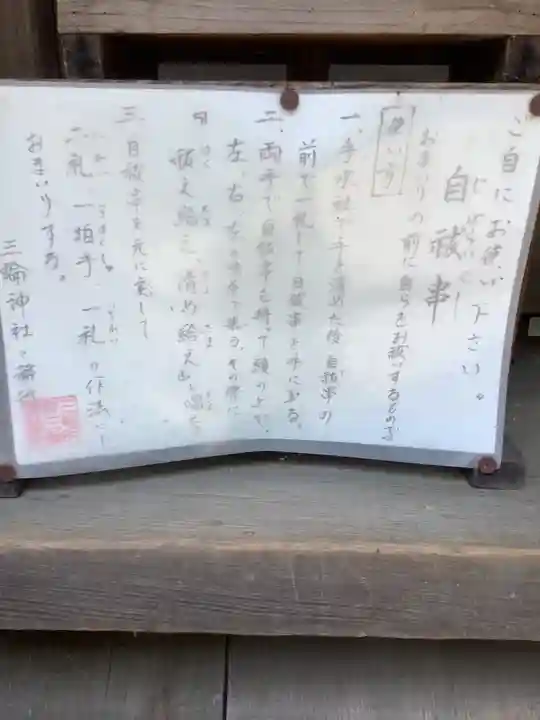 ご自由にお使い下さい。
自祓串
おまいりの前に自らをお祓いするもの
使い方
一、手水社で手を清めた後、自祓串の
前で一礼して自祓串を手にとる。
二、両手で自祓串を持って頭の上で、
左、右、左
祓え給え、清め給え
三、自祓串を元に戻して
二礼、一拍手、一礼の作法で
おまいりする。
三輪神社